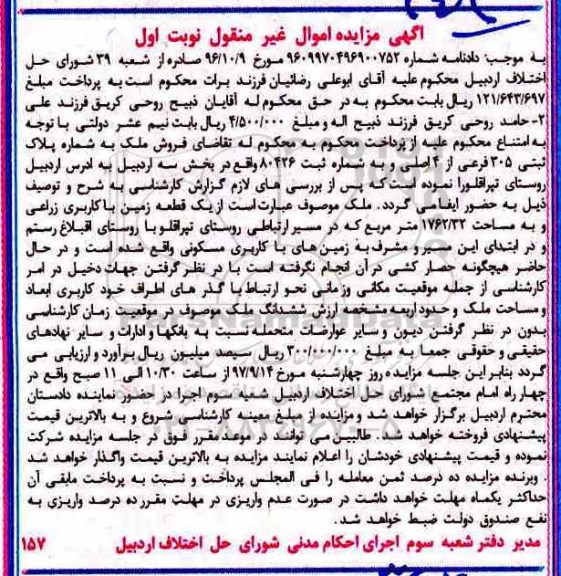 آگهی مزایده اموال غیر منقول نوبت اول
به موجب: دادنامه شماره ۹۶۰۹۹۷۰۴۹۶۹۰۰۷۵۲ مورخ ۹۶/۱۰/۹ صادره از شعبه ۳۹ شورای حل
اختلاف اردبیل محکوم علیه آقای ابوعلی رضائیان فرزند برات محکوم است به پرداخت مبلغ
۱۲۱/۶۴۳/۶۹۷ ریال بابت محکوم به در حق محکوم له آقایان ذبیح روحی کریق فرزند علی
۲- حامد روحی کریق فرزند ذبیح اله و مبلغ ۴/۵۰۰/۰۰۰ ریال بابت نیم عشر دولتی با توجه
به امتناع محکوم علیه از پرداخت محکوم به محکوم له تقاضای فروش ملک به شماره پلاک
ثبتی ۳۰۵ فرعی از ۴ اصلی، به شماره ثبت ۸۰۴۲۶ واقع در بخش سه اردبیل به ادرس اردبیل
روستای تپراقلورا نموده است که پس از بررسی های لازم گزارش کارشناسی به شرح و توصیف
ذیل به حضور ایفا می گردد. ملک موصوف عبارت است از یک قطعه زمین با کاربری زراعی
و به مساحت ۱۷۶۲/۳۲ متر مربع که در مسیر ارتباطی روستای تپراقلو با روستای اقبلاغ رستم
و در ابتدای این مسیر و مشرف به زمین های با کاربری مسکونی واقع شده است و در حال
حاضر هیچگونه حصار کشی در آن انجام نگرفته است با در نظر گرفتن جهات دخیل در امر
کارشناسی از جمله موقعیت مکانی وزمانی نحو ارتباط با گذر های اطراف خود کاربری ابعاد
و مساحت ملک و حدود اربعه مشخصه ارزش ششدانگ ملک موصوف و موقعیت زمان کارشناسی
بدون در نظر گرفتن دیون و سایر عوارضات متحمله نسبت به بانکها و ادارات و سایر نهادهای
حقیقی و حقوقی جمعا به مبلغ ۳۰۰/۰۰۰/۰۰۰ ریال سیصد میلیون ریال برآورد و ارزیابی می
گردد بنابر این جلسه مزایده روز چهارشنبه مورخ ۹۷/۹/۱۴ از ساعت ۱۰/۳۰ الی ۱۱ صبح واقع در
چهار راه امام مجتمع شورای حل اختلاف اردبیل شعبه سوم اجرا در حضور نماینده دادستان
محترم اردبیل برگزار خواهد شد و مزایده از مبلغ معینه کارشناسی شروع و به بالاترین قیمت
پیشنهادی فروخته خواهد شد. طالبین می توانند در موعد مقرر فوق در جلسه مزایده شرکت
نموده و قیمت پیشنهادی خودشان را اعلام نمایند مزایده به بالاترین قیمت واگذار خواهد شد
. وبرنده مزایده ده درصد ثمن معامله را فی المجلس پرداخت و نسبت به پرداخت مابقی آن
حداکثر یکماه مهلت خواهد داشت در صورت عدم واریزی در مهلت مقرر ده درصد واریزی به
نفع صندوق دولت ضبط خواهد شد.
مدیر دفتر شعبه سوم اجرای احکام مدنی شورای حل اختلاف اردبیل ۱۵۷